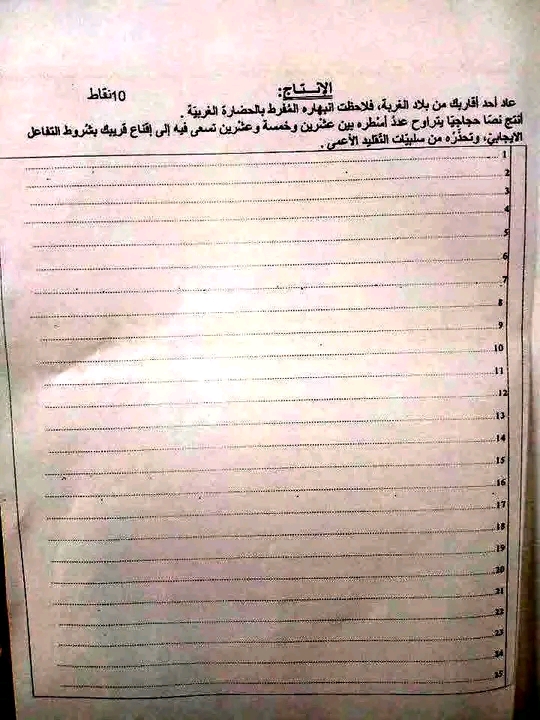 الإنتاج: 10نقاط
عاد أحد أقاربك من بلاد الغربة، فلاحظت انبهاره المُفرط بالحضارة الغربيّة .
أنتج نصّا حجاجيّا يتراوح عددُ أسْطره بين عشرين وخمسة وعشْرين تسعى فيه إلى إقناع قريبك بشُروط التّفاعل
الإيجابيّ، وتحذّرُه من سلبيّات التّقليد الأعمى .
1
2
3
4
5
6
7
8
9
10
11
12
13
14
15
16
17
18
19
20
21
22
23
24
25